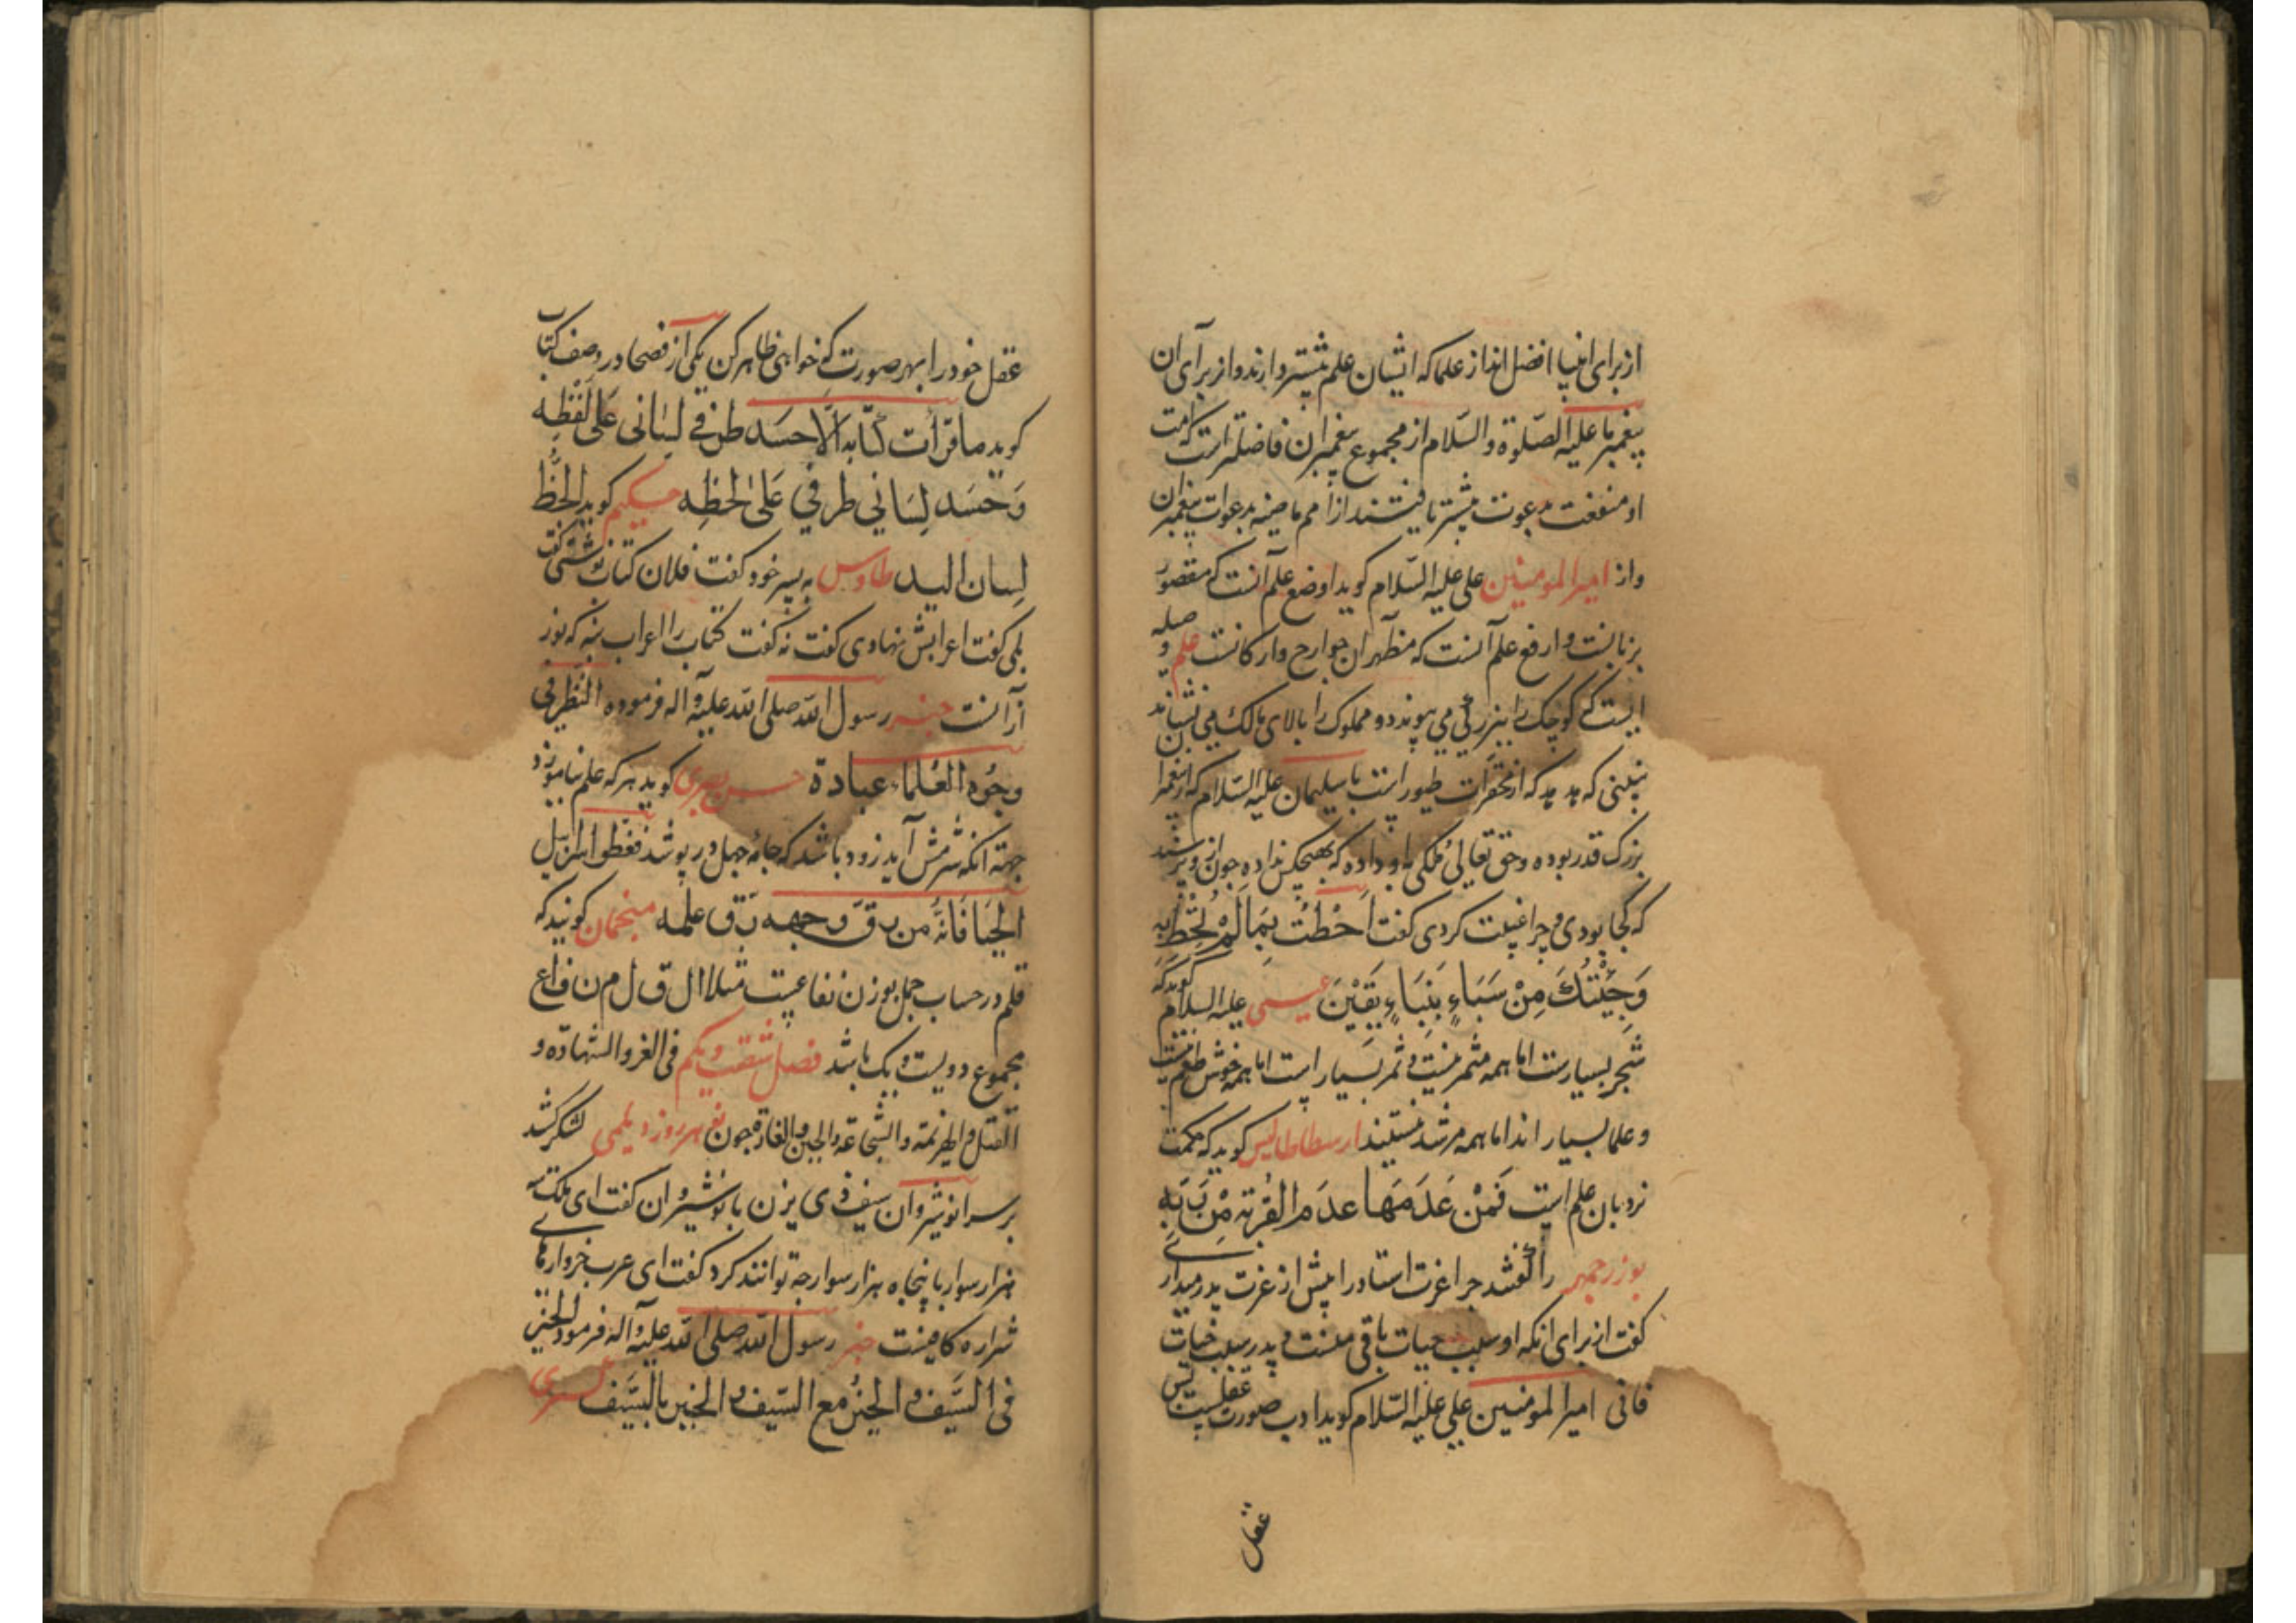 از برای انبیا افضل اند از علما که ایشان علم بیشتر دارند و از برای آن
پیغمبر ما علیه الصّلوة والسّلام از مجموع پیغمبران فاضلتر است که امت
او منفعت بدعوت بیشتر یافتند از امم ماضیه بدعوات پیغمبران
و از امیرالمومنین علی علیه السّلام کوید اوضع علم آنست که مقصور
بزبانست و ارفع علم آنست که مظهر ان جوارح و ارکانست علم وصله
ایست که کوچک را ببزرکی می پیوندد و مملوک را بالای مالک می نشاند
نبینی که هدهد که از محقرات طیور است با سلیمان علیه السّلام که از پیغمبران
بزرک قدر بوده و حق تعالی ملکی باو داده که بهیچکس نداده چون از وی پرسید
که کجا بودی و چرا غیبت کردی کفت اَحَطْتُ بِمَا لَمْ تُحِطْ بِهِ
وَجِئْتُكَ مِنْ سَبَاءٍ بِنَبَاءٍ يَقِيْنَ عیسی علیه السلام کوید که
شجر بسیارست اما همه مثمر نیست و ثمر بسیار است اما همه خوش طعم نیست
و علما بسیار اند اما همه مرشد نیستند ارسطاطالیس کوید که حکمت
نردبان علم است فَمَنْ عَدَمَهَا عدَم القُربَة مِنْ رَبِّهِ
بوزرجمهر را کفتند چرا عزت استاد را پیش از عزت پدر میداری
کفت از برای انکه او سبب حیات باقی منست و پدر سبب حیات
فانی امیر المومنین علی علیه السّلام کوید ادب صورت عقلست پس
عقل
عقل خود را بهر صورت که خواهی ظاهر کن یکی از فصحا در وصف کتاب
کوید ما قرأت کتابه الّا حسَد طرفی لسانی عَلی لَفْظِه
وَحَسَد لِسَاني طرفي عَلى لحظِه حکیم کوید الخَطُّ
لِسان الید طاوس به پسر خود کفت فلان کتاب نوشتی کفت
بلی کفت اعرابش نهادی کفت نه کفت کتاب را اعراب بنه که نور
آن آنست خبر رسول الله صلی الله علیه وآله فرموده النظر فی
وجُوه العُلماء عبادة حسن بصری کوید هر که علم نیاموزد
جهة انکه شرمش آید زود باشد که جامهٔ جهل در پوشد فقطعوا سرابیل
الحَيَا فَانَّهُ من رق وجهه رق علمه منجمان کویند که
قلم در حساب جمل بوزن نفاعیست مثلا ال ق ل م ن ف ا ع
مجموع دویست و یک باشد فصل شصت ویکم فی الغزو والشهادة و
القتل والهزیمة والشجاعة والجبن والغارة چون هرروز دیلمی لشکر کشید
بر سر انوشیروان سیف ذی یزن با نوشیروان کفت ای ملک سه
هزار سوار با پنجاه هزار سوار چه توانند کرد کفت ای عرب خروارهای
شراره کافیست خبر رسول الله صلی الله علیه وآله فرمود الخیر
فی السَّیف والخیرُ مع السّیف والخیر بالسَّیف کسری